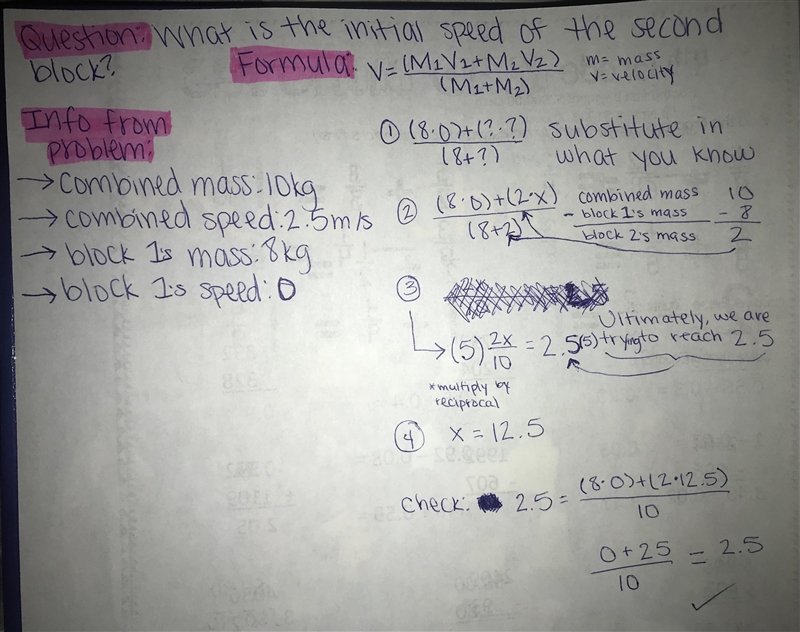 Question: What is the initial speed of the second
block?
Formula: V = (M₁V₁+M₂V₂) / (M₁+M₂)
m= mass
v= velocity
Info from
problem:
→ combined mass: 10kg
→ combined speed: 2.5m/s
→ block 1's mass: 8kg
→ block 1's speed: 0
① (8·0)+(?·?) / (8+?)
substitute in
what you know
② (8·0)+(2·x) / (8+2)
combined mass 10
- block 1's mass - 8
block 2's mass 2
③
Ultimately, we are
trying to reach 2.5
(5) 2x/10 = 2.5(5)
*multiply by
reciprocal
④ x = 12.5
check: 2.5 = (8·0)+(2·12.5) / 10
0+25 / 10 = 2.5 ✓